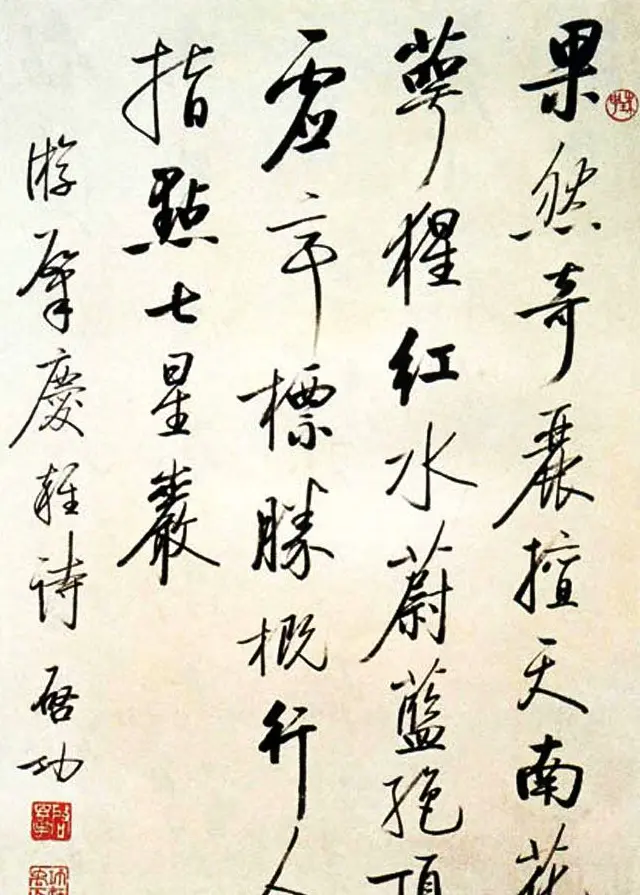 果然奇麗擅天南花
萼猩紅水蔚藍絕頂
虛亭標勝概行人
指點七星巖
游肇慶雜詩 啓功